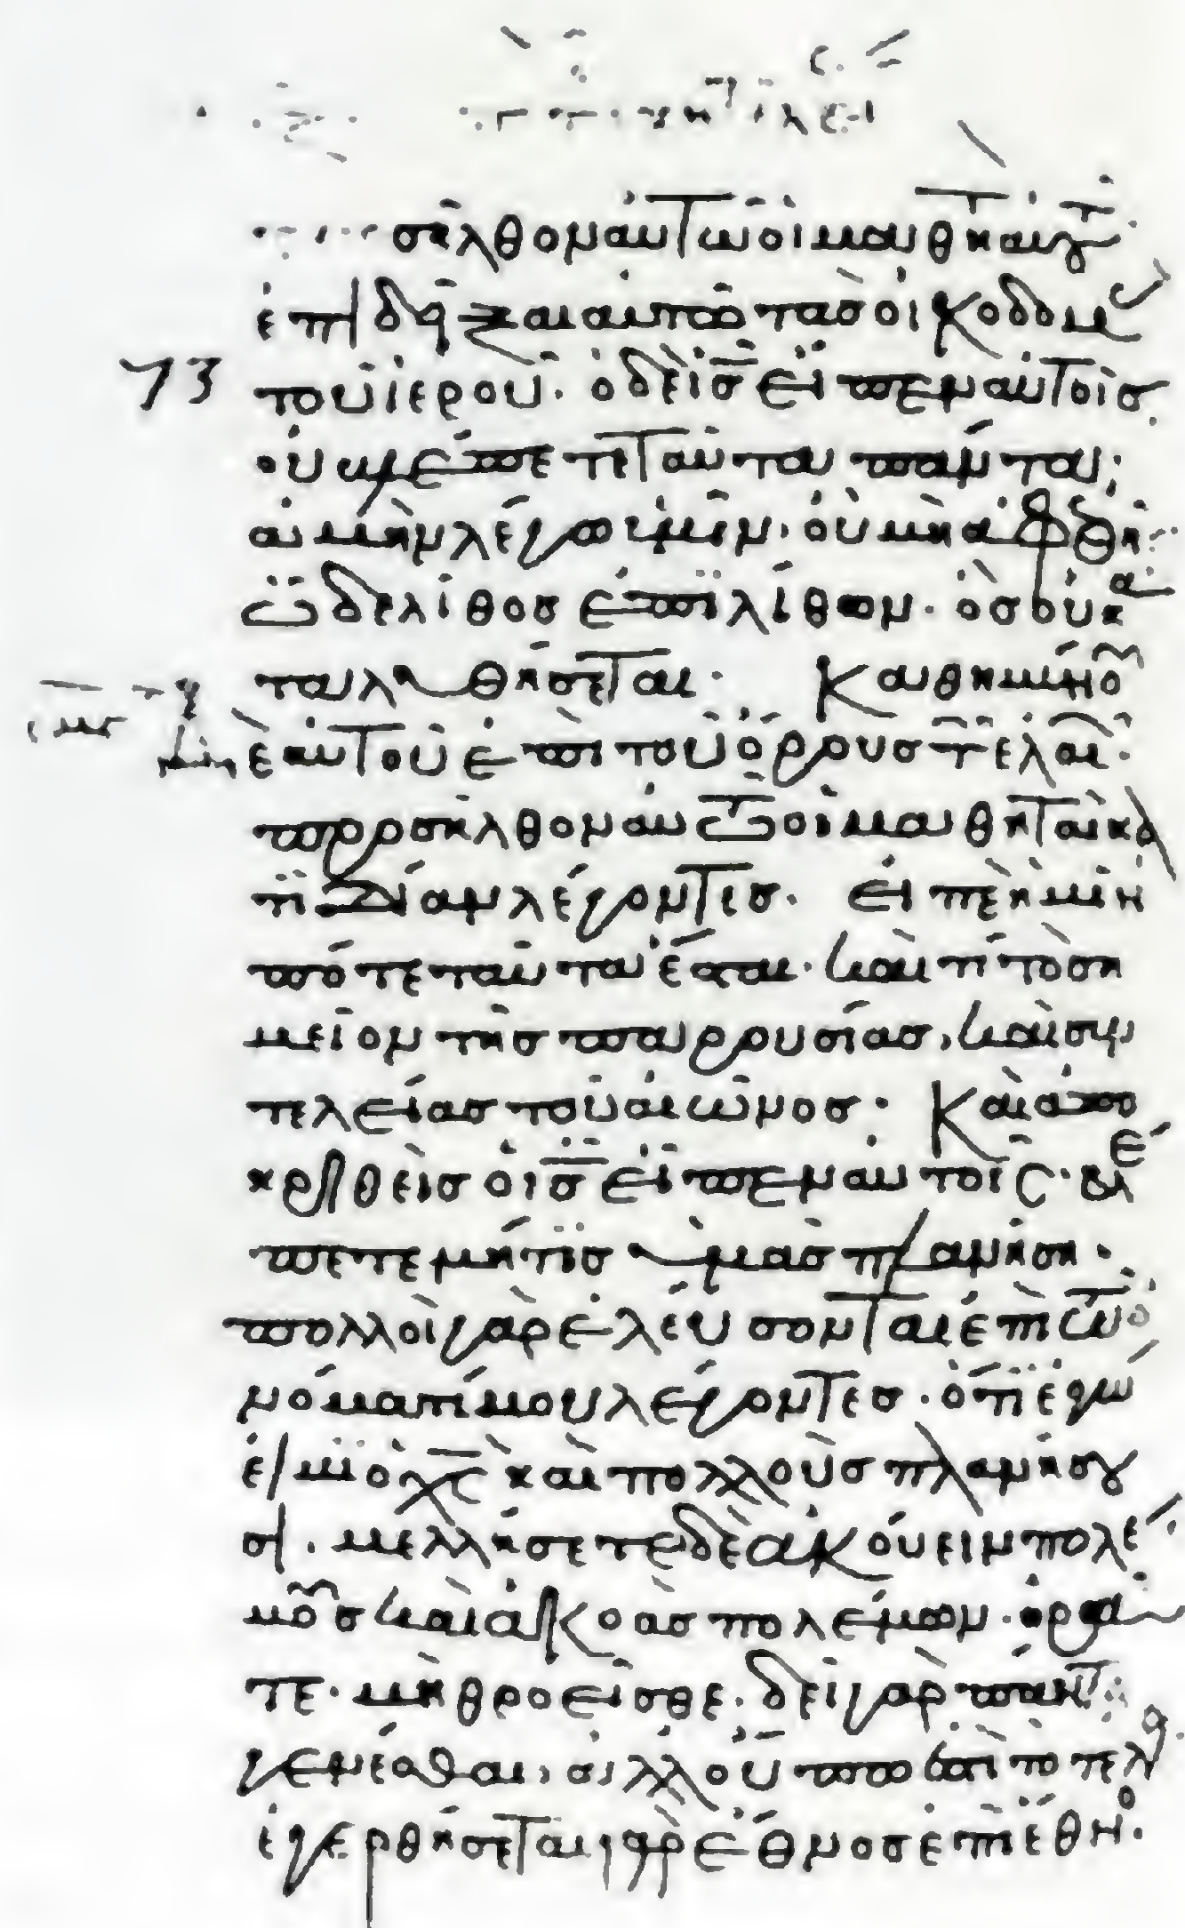 σῆλθον αὐτῶ οἱ μαθηται αυτ
ἐπιδεῖξαι αὐτῶ τὰσ οἰκοδομ
73 τοῦ ἱεροῦ. ὁ δὲ ι̅σ̅ εἶπεν αὐτοῖσ
οὐ βλέπετε ταῦτα πάντα;
ἀμὴν λέγω ὑμῖν. οὐ μὴ ἀφεθῆ
ὧδε λίθοσ ἐπὶ λίθον. ὃσ οὐ κα
ταλυθήσεται. Καθημένου
δὲ αὐτοῦ ἐπὶ τοῦ ὄρουσ τῶν ἐλαιῶν.
προσῆλθον αὐτῶ οἱ μαθηταὶ κα
τἰδίαν λέγοντεσ. εἰπὲ ἡμῖν
πότε ταῦτα ἔσται. καὶ τί τὸ ση
μεῖον τῆσ παρουσίασ, καὶ συν
τελείασ τοῦ αἰῶνοσ. Καὶ ἀπο
κριθεὶσ ὁ ι̅σ̅ εἶπεν αὐτοῖς. βλέ
πετε μήτισ ὑμᾶσ πλανήση.
πολλοὶ γὰρ ἐλεύσονται ἐπὶ τῶ ὀ
νόματί μου λέγοντεσ. ὅτι ἐγώ
εἰμι ὁ χ̅σ̅ καὶ πολλοὺσ πλανήσου
σι. μελλήσετε δὲ ἀκούειν πολέ
μουσ καὶ ἀκοὰσ πολέμων. ὁρᾶ
τε. μὴ θροεῖσθε. δεῖ γὰρ πάντα
γενέσθαι, ἀλλ' οὔπω ἐστὶ τὸ τέλοσ
ἐγερθήσεται γὰρ ἔθνοσ ἐπὶ ἔθνο